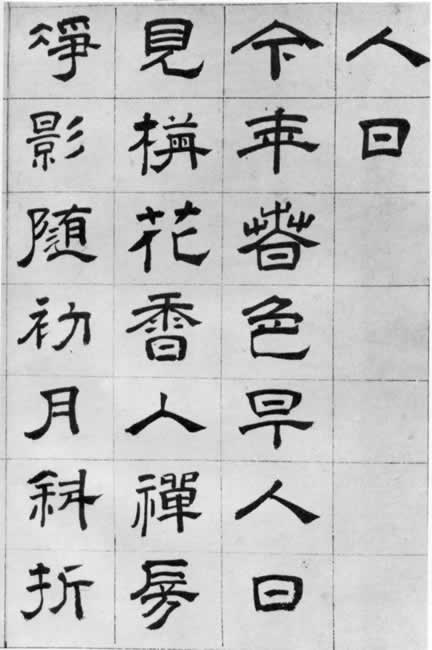 人日
今年春色早人日
見梅花香入禪房
凈影隨初月斜折